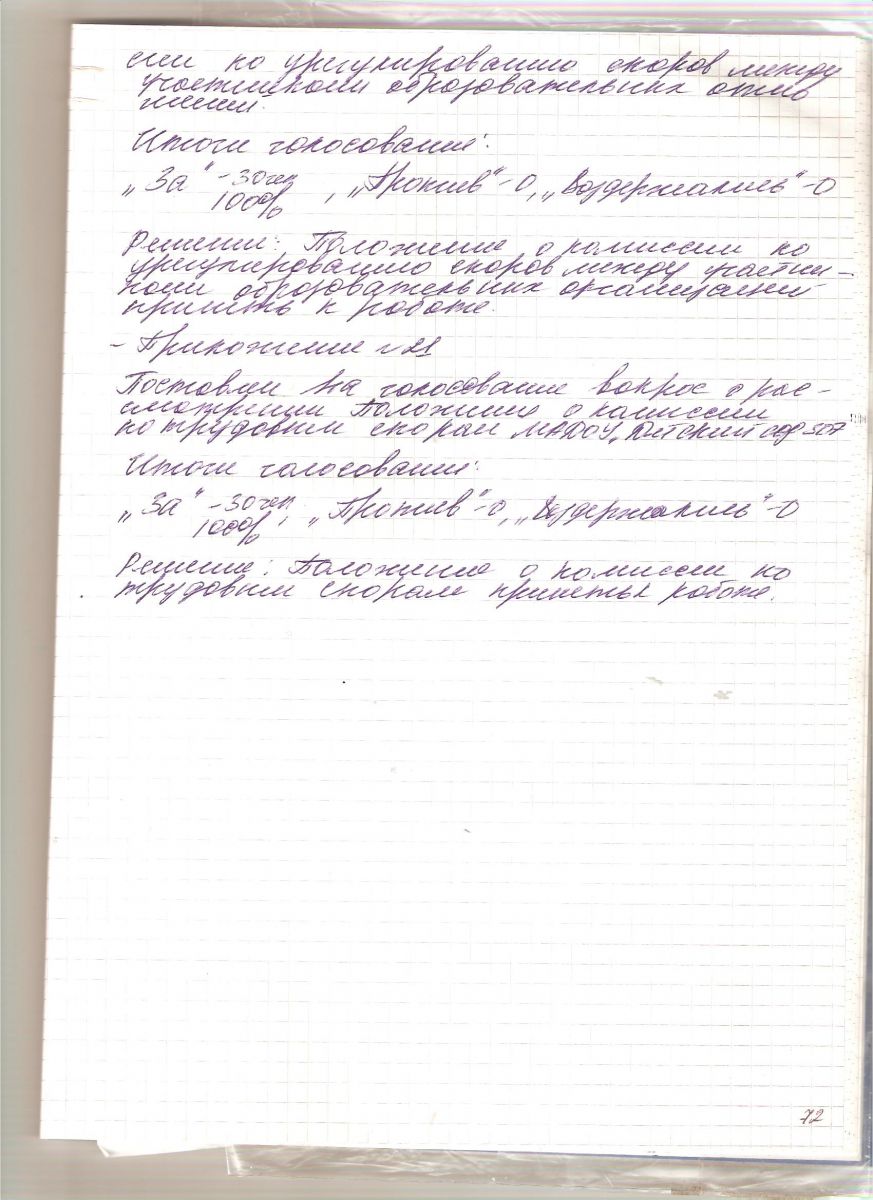 сии по урегулированию споров между
участниками образовательных отно
шений.
Итоги голосования:
„За" - 30 чел 100%, „Против" - 0, „Воздержались" - 0
Решение: Положение о комиссии по
урегулированию споров между участни-
ками образовательных организаций
принять к работе.
- Приложение № 21
Поставлен на голосование вопрос о рас-
смотрении Положение о комиссии
по трудовым спорам МАДОУ „Детский сад
Итоги голосования:
„За" - 30 чел 100%, „Против" - 0, „Воздержались" - 0
Решение: Положение о комиссии по
трудовым спорам принять к работе.
72